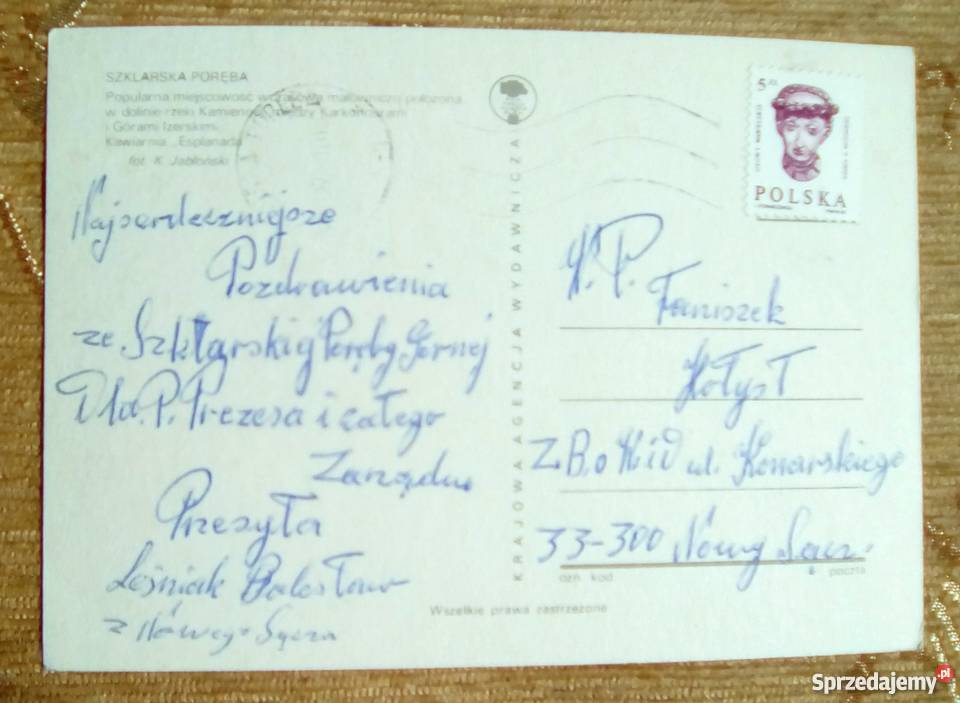 SZKLARSKA PORĘBA
Popularna miejscowość wczasowa malowniczo położona
w dolinie rzeki Kamiennej, między Karkonoszami
i Górami Izerskimi.
Kawiarnia „Esplanada”
fot. K. Jabłoński
Najserdeczniejsze
Pozdrawienia
ze. Szklarskiej Poręby Gornej
Dla. P. Prezesa i całego
Zarządu
Przesyła
Leśniak Bolesław
z Nowego Sącza
KRAJOWA AGENCJA WYDAWNICZA
5 ZŁ
POLSKA
W. P.
Faniszek
Hołyst
Z B.o W i D ul. Konarskiego
33-300 Nowy Sącz.
ozn. kod
poczta
Wszelkie prawa zastrzeżone
Sprzedajemy.pl